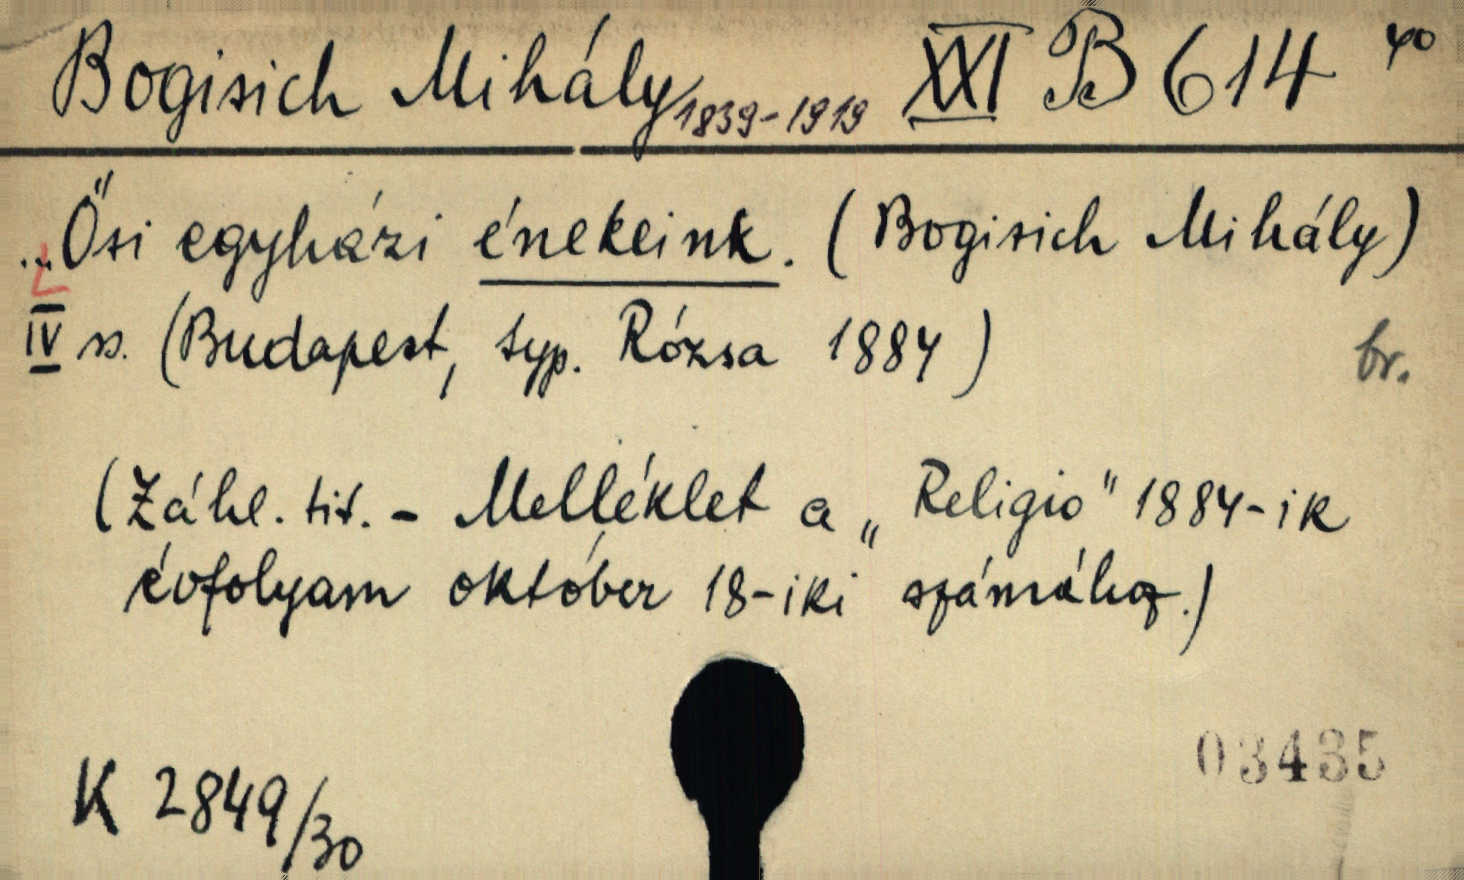 Bogisich Mihály 1839-1919 XXI B 614 4o
...Ősi egyházi énekeink. (Bogisich Mihály)
IV s. (Budapest, typ. Rózsa 1884) br.
(Záhl. tit. - Melléklet a „Religio" 1884-ik
évfolyam október 18-iki számához.)
03435
K 2849/30